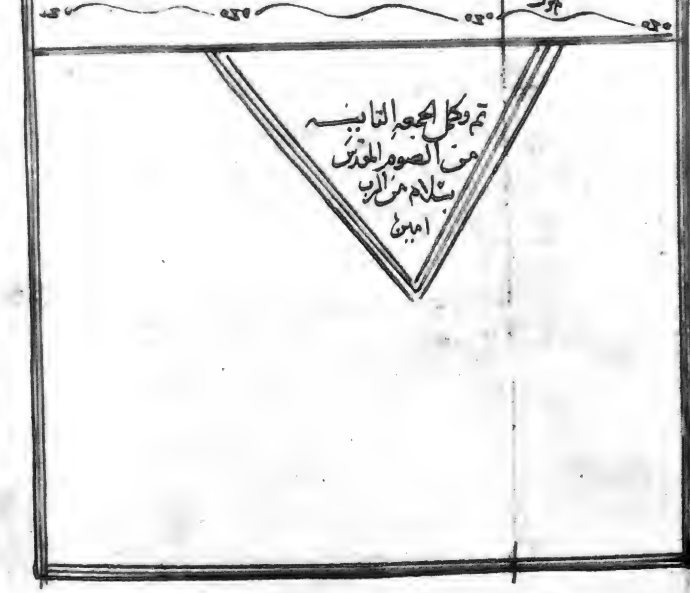 تم وكمل الجمعه التانيه
من الصوم المقدس
بسلام من الرب
امين